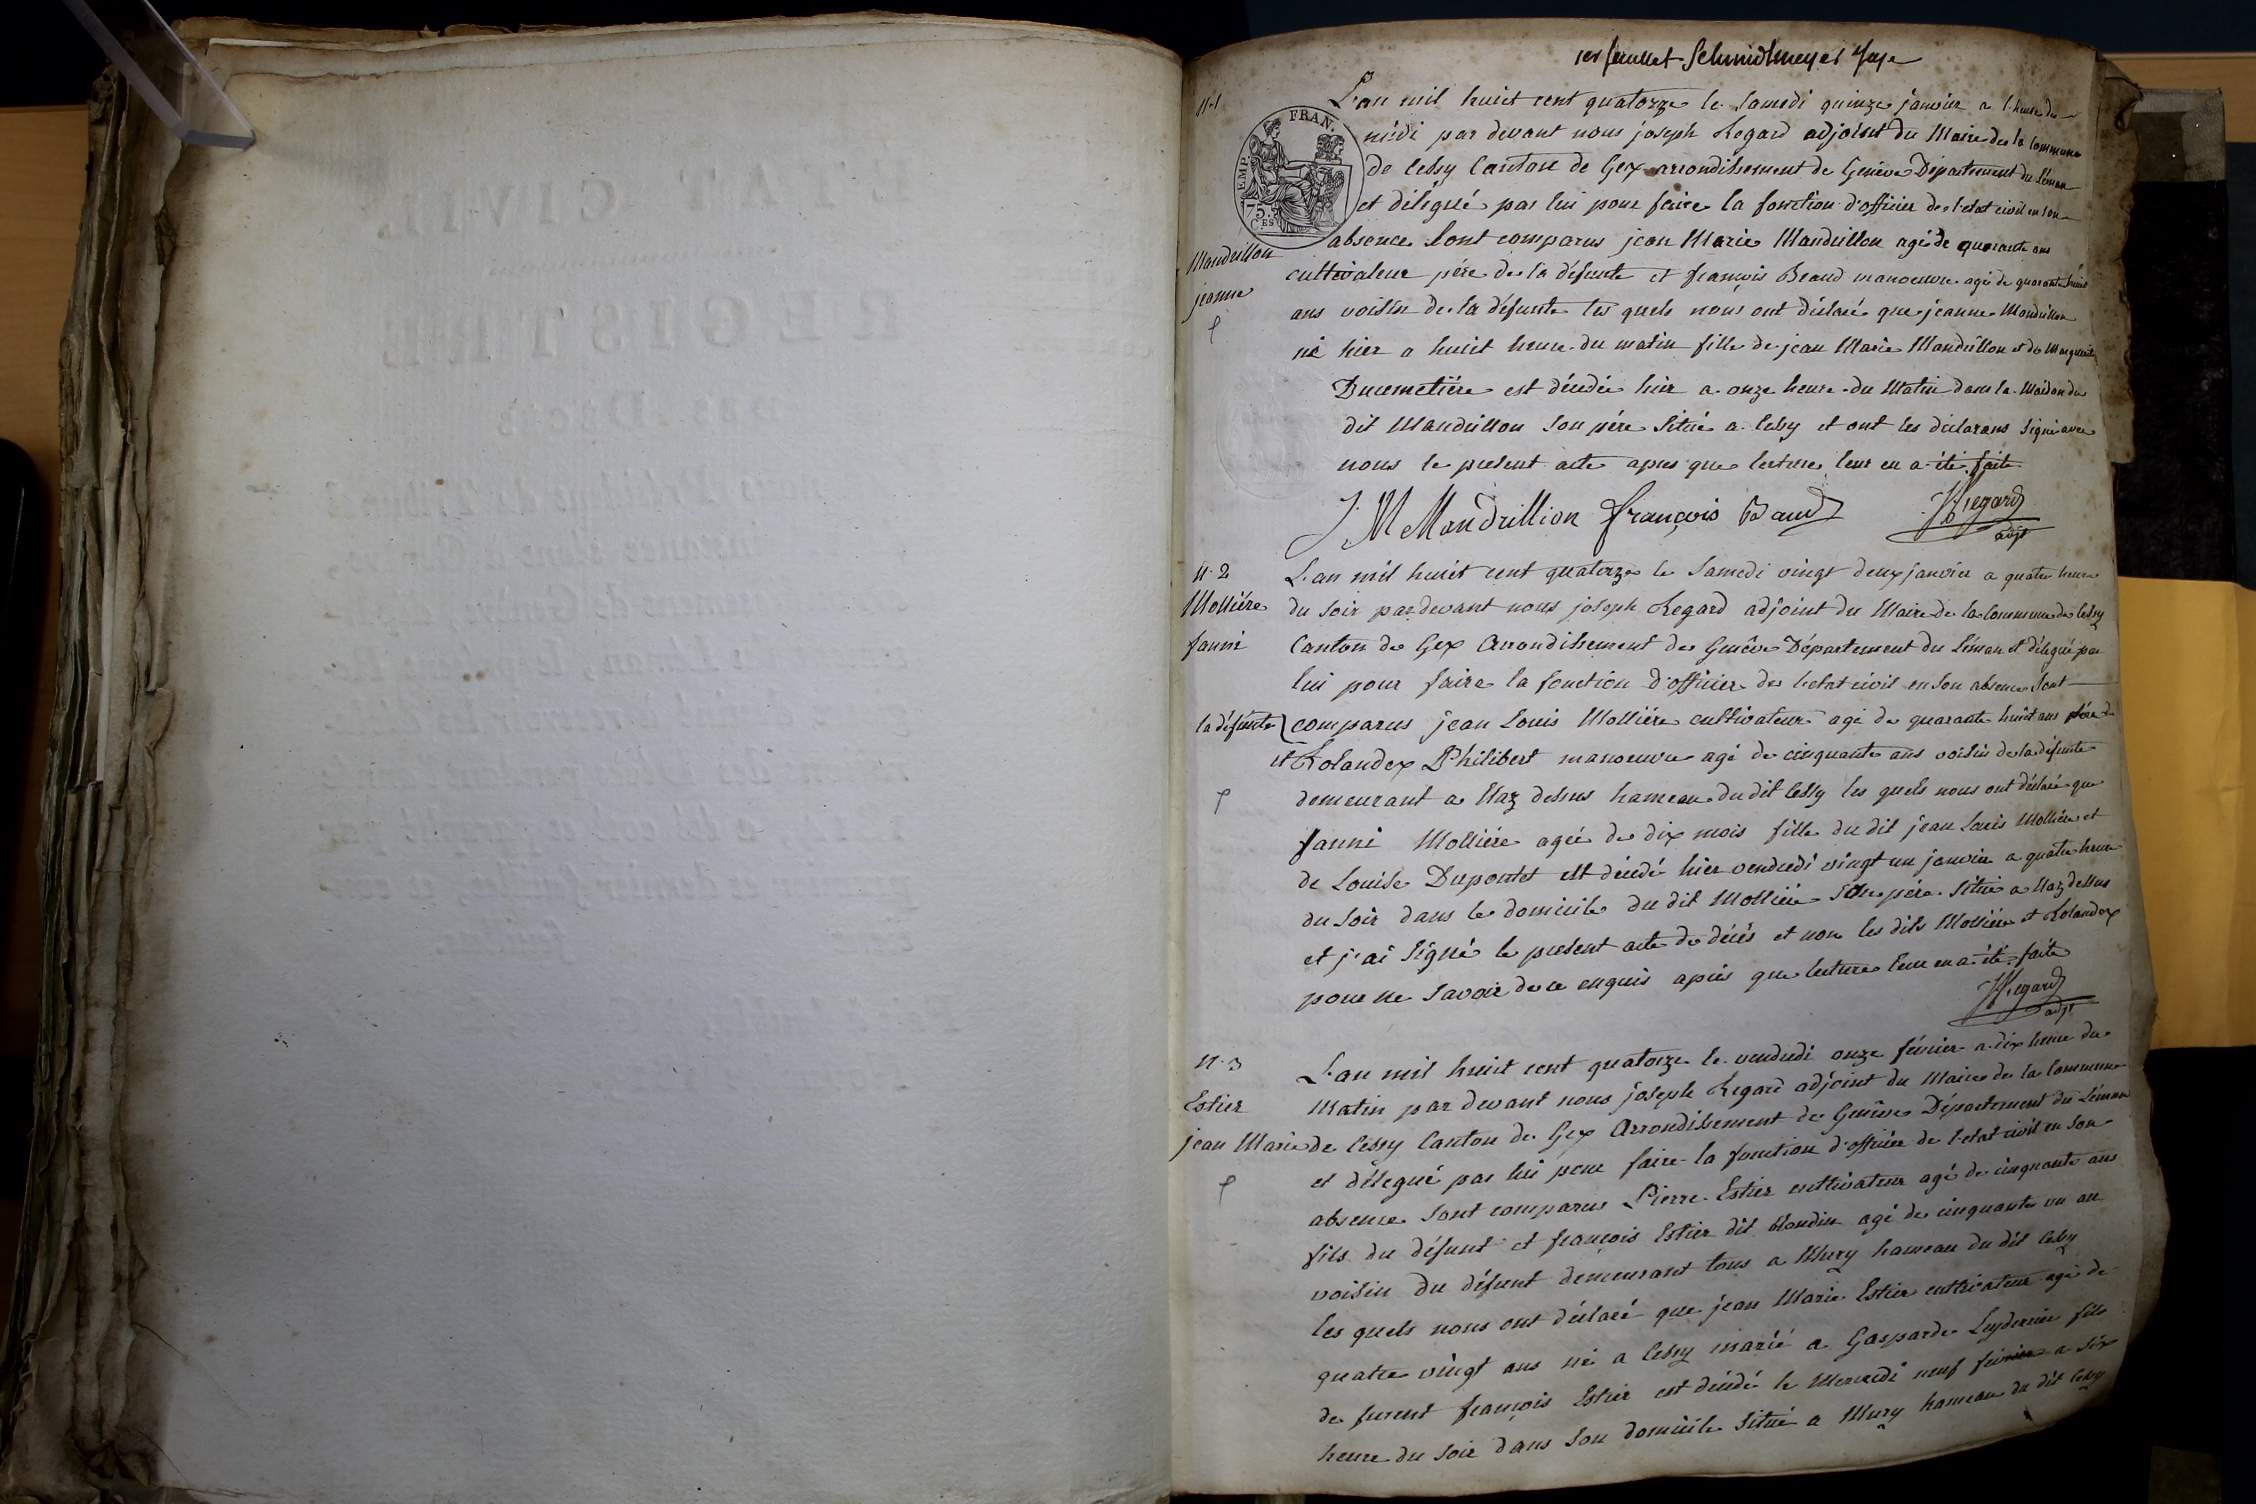 1er feuillet Schmidtmeyer Juge
N.1
L'an mil huict cent quatorze le Samedi quinze janvier a l'heure de
midi par devant nous joseph Regard adjoint du Maire de la Commune
de Cessy Canton de Gex arrondissement de Genève Département du Léman
et délégué par lui pour faire la fonction d'officier de l'etat civil en son
EMP. FRAN.
75.
CES
Mandrillon
jeanne
absence Sont comparus jean Marie Mandrillon agé de quarante ans
cultivateur père de la défunte et françois Beaud manoeuvre agé de quarante huict
ans voisin de la défunte les quels nous ont déclaré que jeanne Mandrillon
né hier a huict heure du matin fille de jean Marie Mandrillon et de Marguerite
Ducimetière est décédée hier a onze heure du Matin dans la Maison du
dit Mandrillon Son père Situé a Cessy et ont les déclarans Signé avec
nous le present acte apres que lecture leur en a été faite
J. M Mandrillion françois Baud JRegard
adjt
N.2
Mollière
fanni
L'an mil huict cent quatorze le Samedi vingt deux janvier a quatre heure
du Soir par devant nous joseph Regard adjoint du Maire de la Commune de Cessy
Canton de Gex Arrondissement de Genève Département du Léman et délégué par
lui pour faire la fonction d'officier de l'etat civil en Son absence Sont
la défunte
comparus jean Louis Mollière cultivateur agé de quarante huict ans père de
et Rolandex Philibert manoeuvre agé de cinquante ans voisin de la défunte
demeurant a Naz dessus hameau du dit Cessy les quels nous ont déclaré que
fanni Mollière agée de dix mois fille du dit jean Louis Mollière et
de Louise Dupontet est décédé hier vendredi vingt un janvier a quatre heure
du Soir dans le domicile du dit Mollière Son père Situé a Naz dessus
et j'ai Signé le present acte de décès et non les dits Mollière et Rolandex
pour ne Savoir de ce enquis après que lecture leur en a été faite
JRegard
adjt
N.3
Estier
jean Marie
L'an mil huict cent quatorze le vendredi onze février a dix heure du
Matin par devant nous joseph Regard adjoint du Maire de la Commune
de Cessy Canton de Gex Arrondissement de Genève Département du Léman
et délegué par lui pour faire la fonction d'officier de l'etat civil en Son
absence Sont comparus Pierre Estier cultivateur agé de cinquante ans
fils du défunt et françois Estier dit blondin agé de cinquante un an
voisin du défunt demeurant tous a Mury hameau du dit Cessy
les quels nous ont déclaré que jean Marie Estier cultivateur agé de
quatre vingt ans né a Cessy marié a Gasparde fils
de furent françois Estier est décédé le Mercredi neuf février a Six
heure du Soir dans Son domicile Situé a Mury hameau du dit Cessy